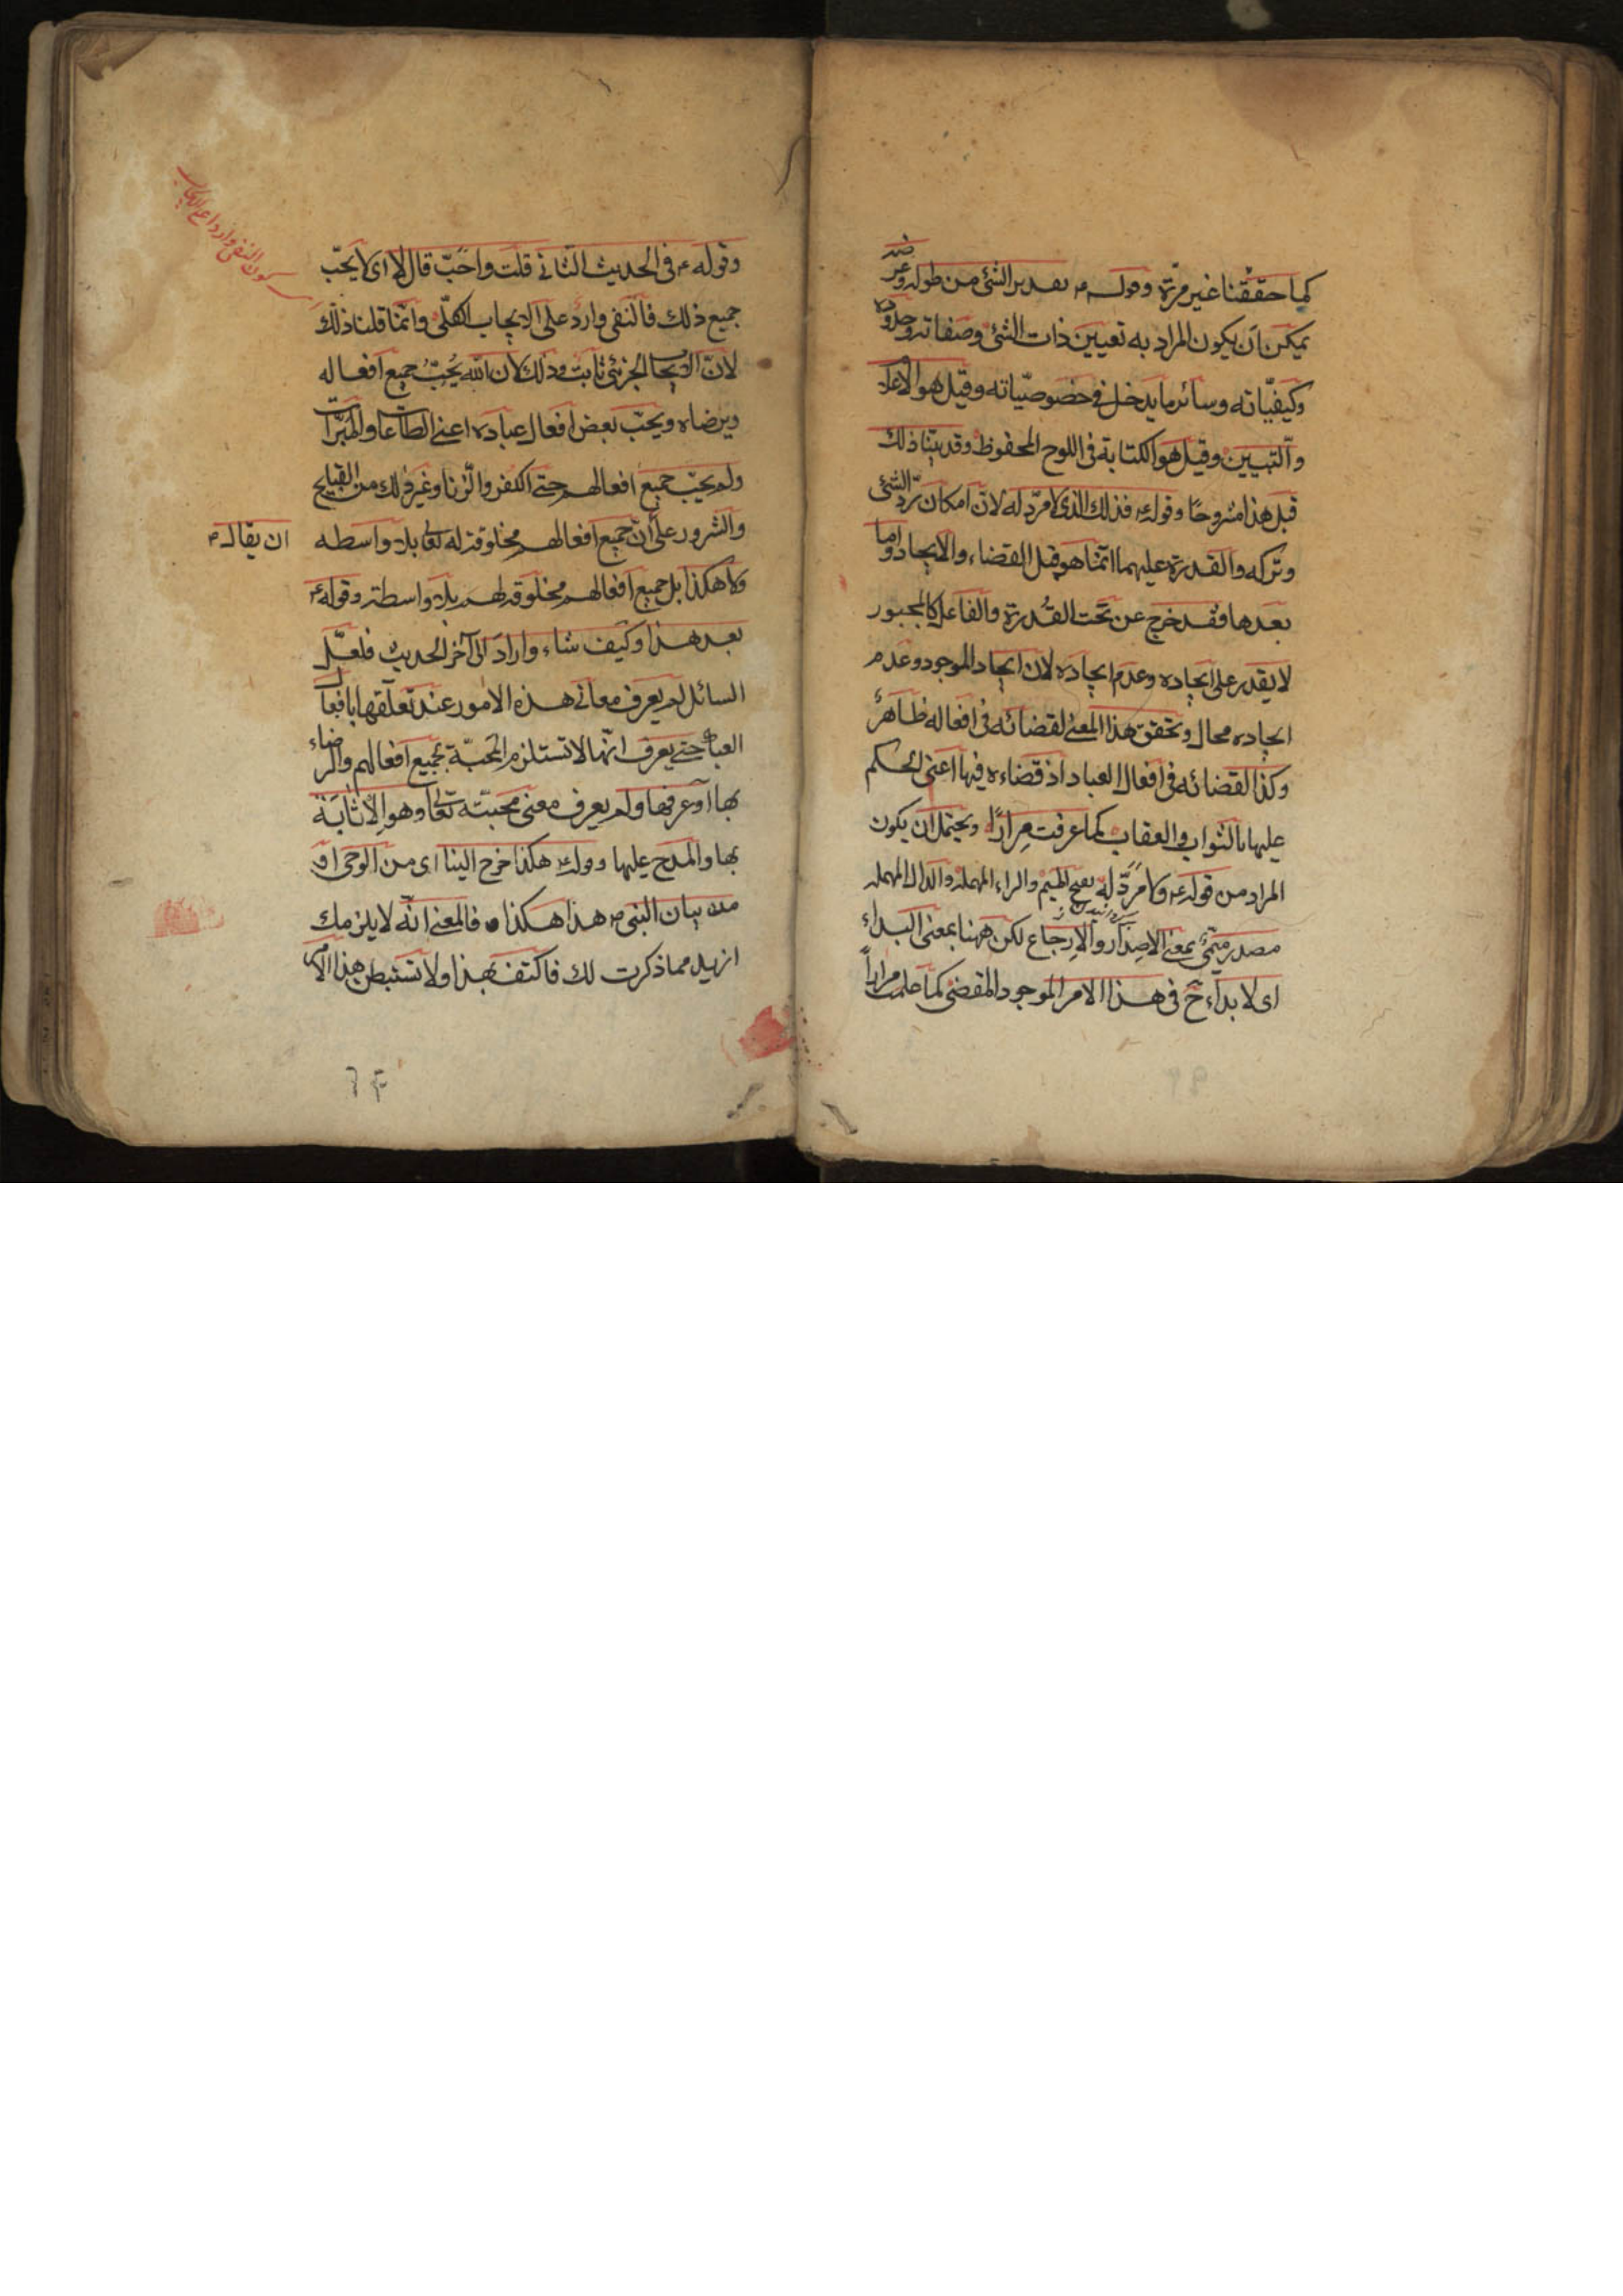 كما حققنا غير مرّة وقوله ع تقدير الشئ من طوله وعرضه
يمكن ان يكون المراد به تعيين ذات الشئ وصفاته وحدوده
وكيفيّاته وسائر ما يدخل فى خصوصيّاته وقيل هو الاعلا
والتبيين وقيل هو الكتابة فى اللوح المحفوظ وقد بيّنا ذلك
قبل هذا مشروحًا وقوله ع فذلك الذى لا مردّ له لانّ امكان ردّ الشئ
وتركه والقدرة عليهما انّما هو قبل القضاء والايجاد واما
بعدها فقد خرج عن تحت القُدرة والفاعل كالمجبور
لا يقدر على ايجاده وعدم ايجاده لان ايجاد الموجود وعدم
ايجاده محال وتحقق هذا المعنى لقضائه فى افعاله ظاهرٌ
وكذا لقضائه فى افعال العباد اذ قضاءه فيها اعنى الحكم
عليها بالثواب والعقاب كما عرفت مرارًا ويحتمل ان يكون
المراد من قوله ع ولا مردّ له بفتح الميم والراء المهملة والدال المهملة
مصدر ميمىّ بمعنى الاصدار والارجاع لكن ههنا بمعنى البداء
اى لا بداء ح فى هذا الامر الموجود المقضى كما علمت مراراً
وقوله ع فى الحديث الثانى قلت واحَبّ قال لا اى لا يحبّ
جميع ذلك فالنفى وارد على الايجاب الكلّى وانّما قلنا ذلك
لانّ الايجاب الجزئى ثابت وذلك لان الله يُحِبّ جميع افعاله
ويرضاه ويحبّ بعض افعال عباده اعنى الطاعات والمبرّات
ولم يحبّ جميع افعالهم حتى الكفر والزنا وغير ذلك من القبايح
والشرور على انّ جميع افعالهم مخلوقة له تعالى بلا واسطه
ان يقال
ولا هكذا بل جميع افعالهم مخلوقة لهم بلا واسطة وقوله ع
بعد هذا وكيف شاء واراد الى آخر الحديث فلعلّ
السائل لم يعرف معانى هذه الامور عند تعلّقها بافعال
العباد حتى يعرف انّها لا تستلزم المحبّة بجميع افعالهم والرضاء
بها او عرفها ولم يعرف معنى محبّته تعالى وهو الاثابة
بها والمدح عليها وقوله ع هكذا خرج الينا اى من الوحى او
من بيان النبى ص هذا هكذا فالمعنى انّه لا يلزمك
ازيد مما ذكرت لك فاكتف بهذا ولا تستبطن هذا الامر